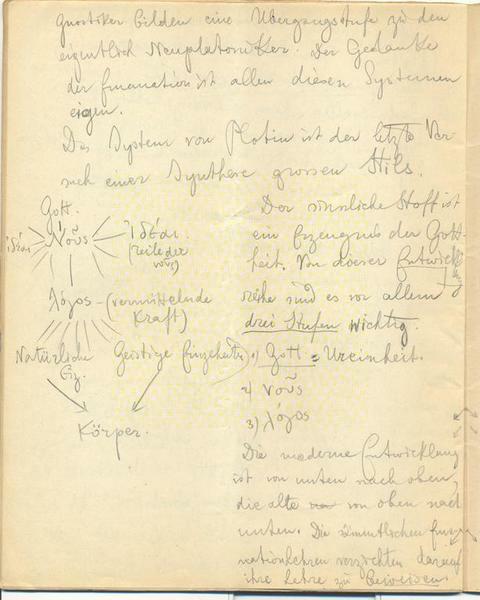 Gnostiker bilden eine Übergangsstufe zu den
eigentlich Neuplatoniker. Der Gedanke
der Emanation ist allen diesen Systemen
eigen.
Das System von Plotin ist der letzte Ver-
such einer Synthese grossen Stils.
Gott.
ἰδέαι Νοῦς Ἰδέαι
(Teile der νοῦς)
λόγος - (vermittelnde
Kraft)
Natürliche Geistige Einzelheiten
Körper.
Der sinnliche Stoff ist
ein Erzeugnis der Gott-
heit. Von dieser Entwick
reihe sind es vor allem
drei Stufen wichtig.
1) Gott = Ureinheit.
2) νοῦς
3) λόγος
Die moderne Entwicklung
ist von unten nach oben,
die alte von oben nach
unten. Die sämmtlichen Ema-
nationslehren verzichten darauf
ihre Lehre zu beweisen.